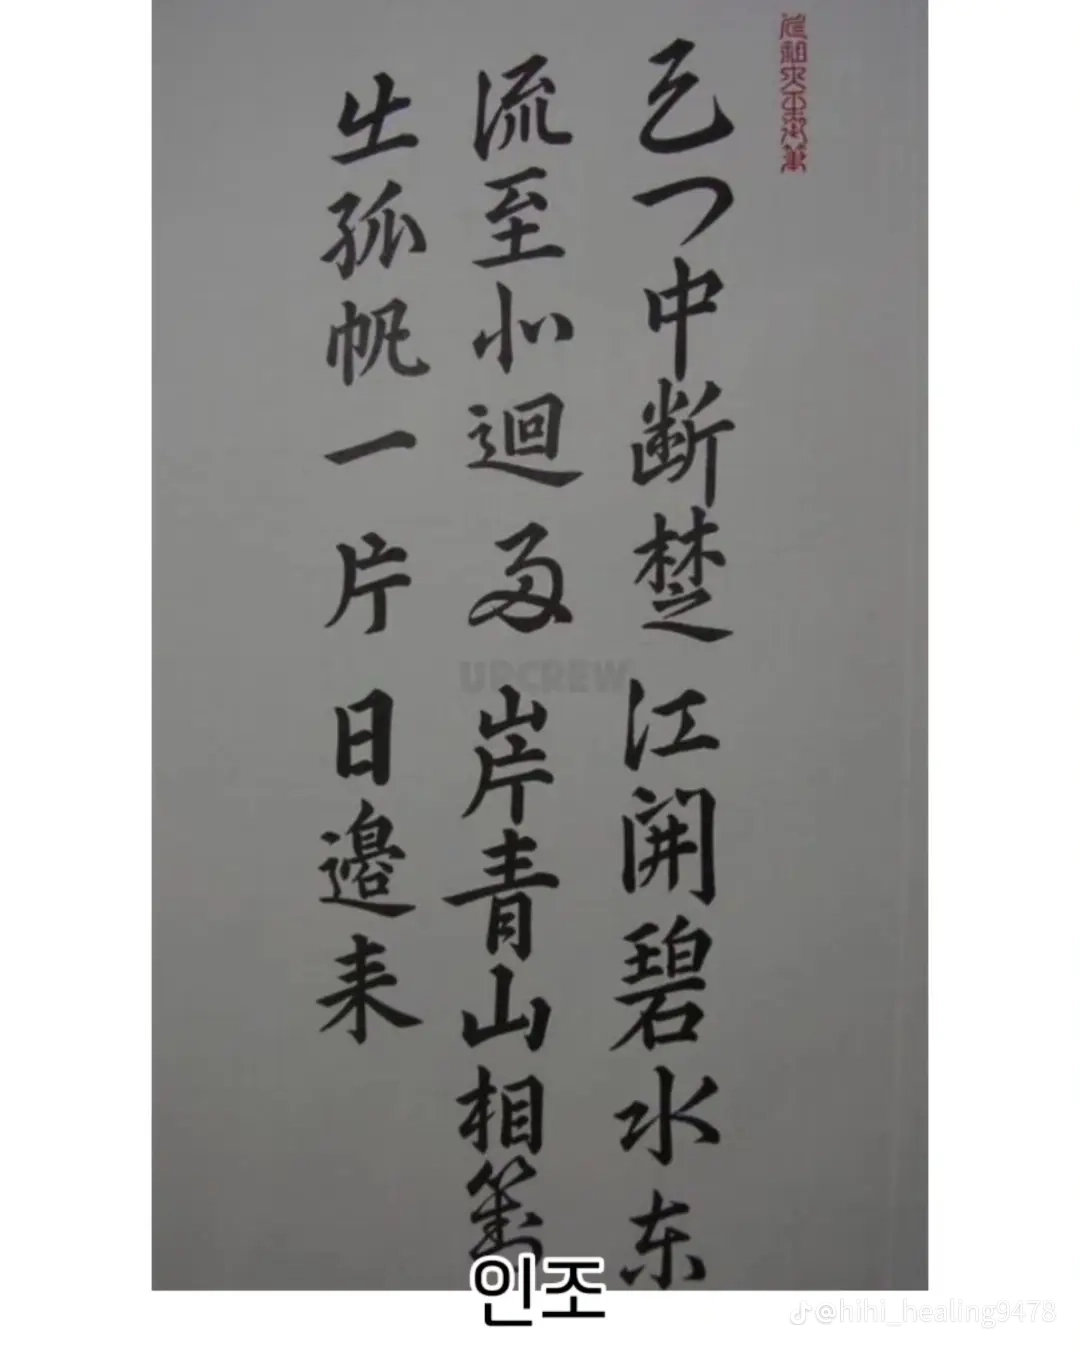 仁祖大王御筆
天门中断楚江開碧水东
流至此迴两岸青山相對
出孤帆一片日邊来
UPCREW
인조
@hihi_healing9478